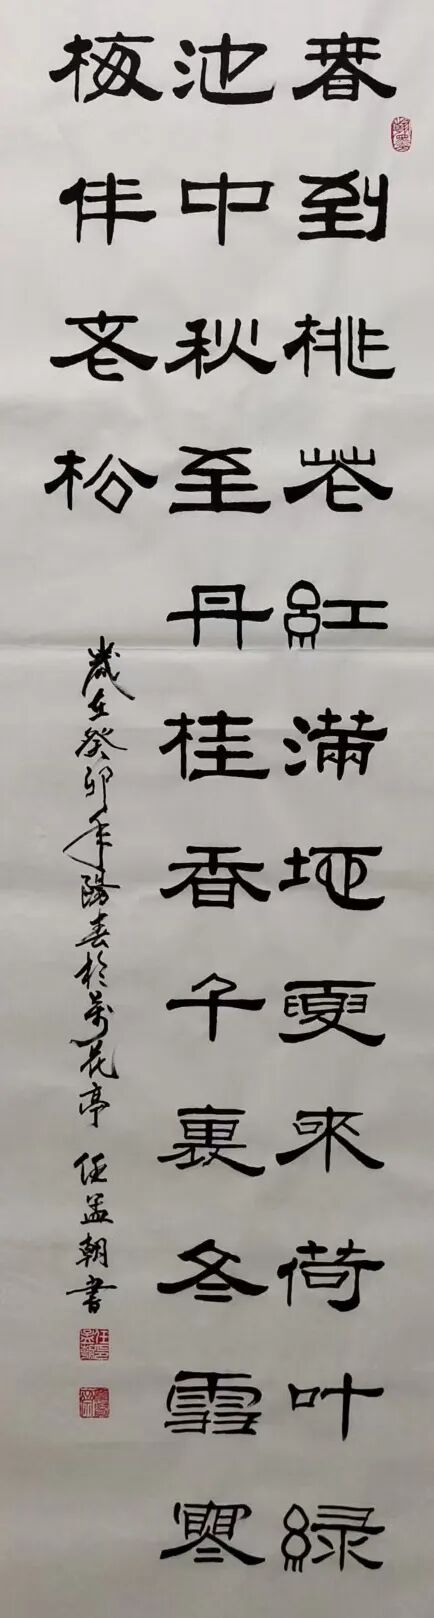 春到桃花紅滿地夏來荷叶緑
池中秋至丹桂香千裏冬雪寒
梅伴老松
歲在癸卯年陽春於萬花亭 任孟朝書